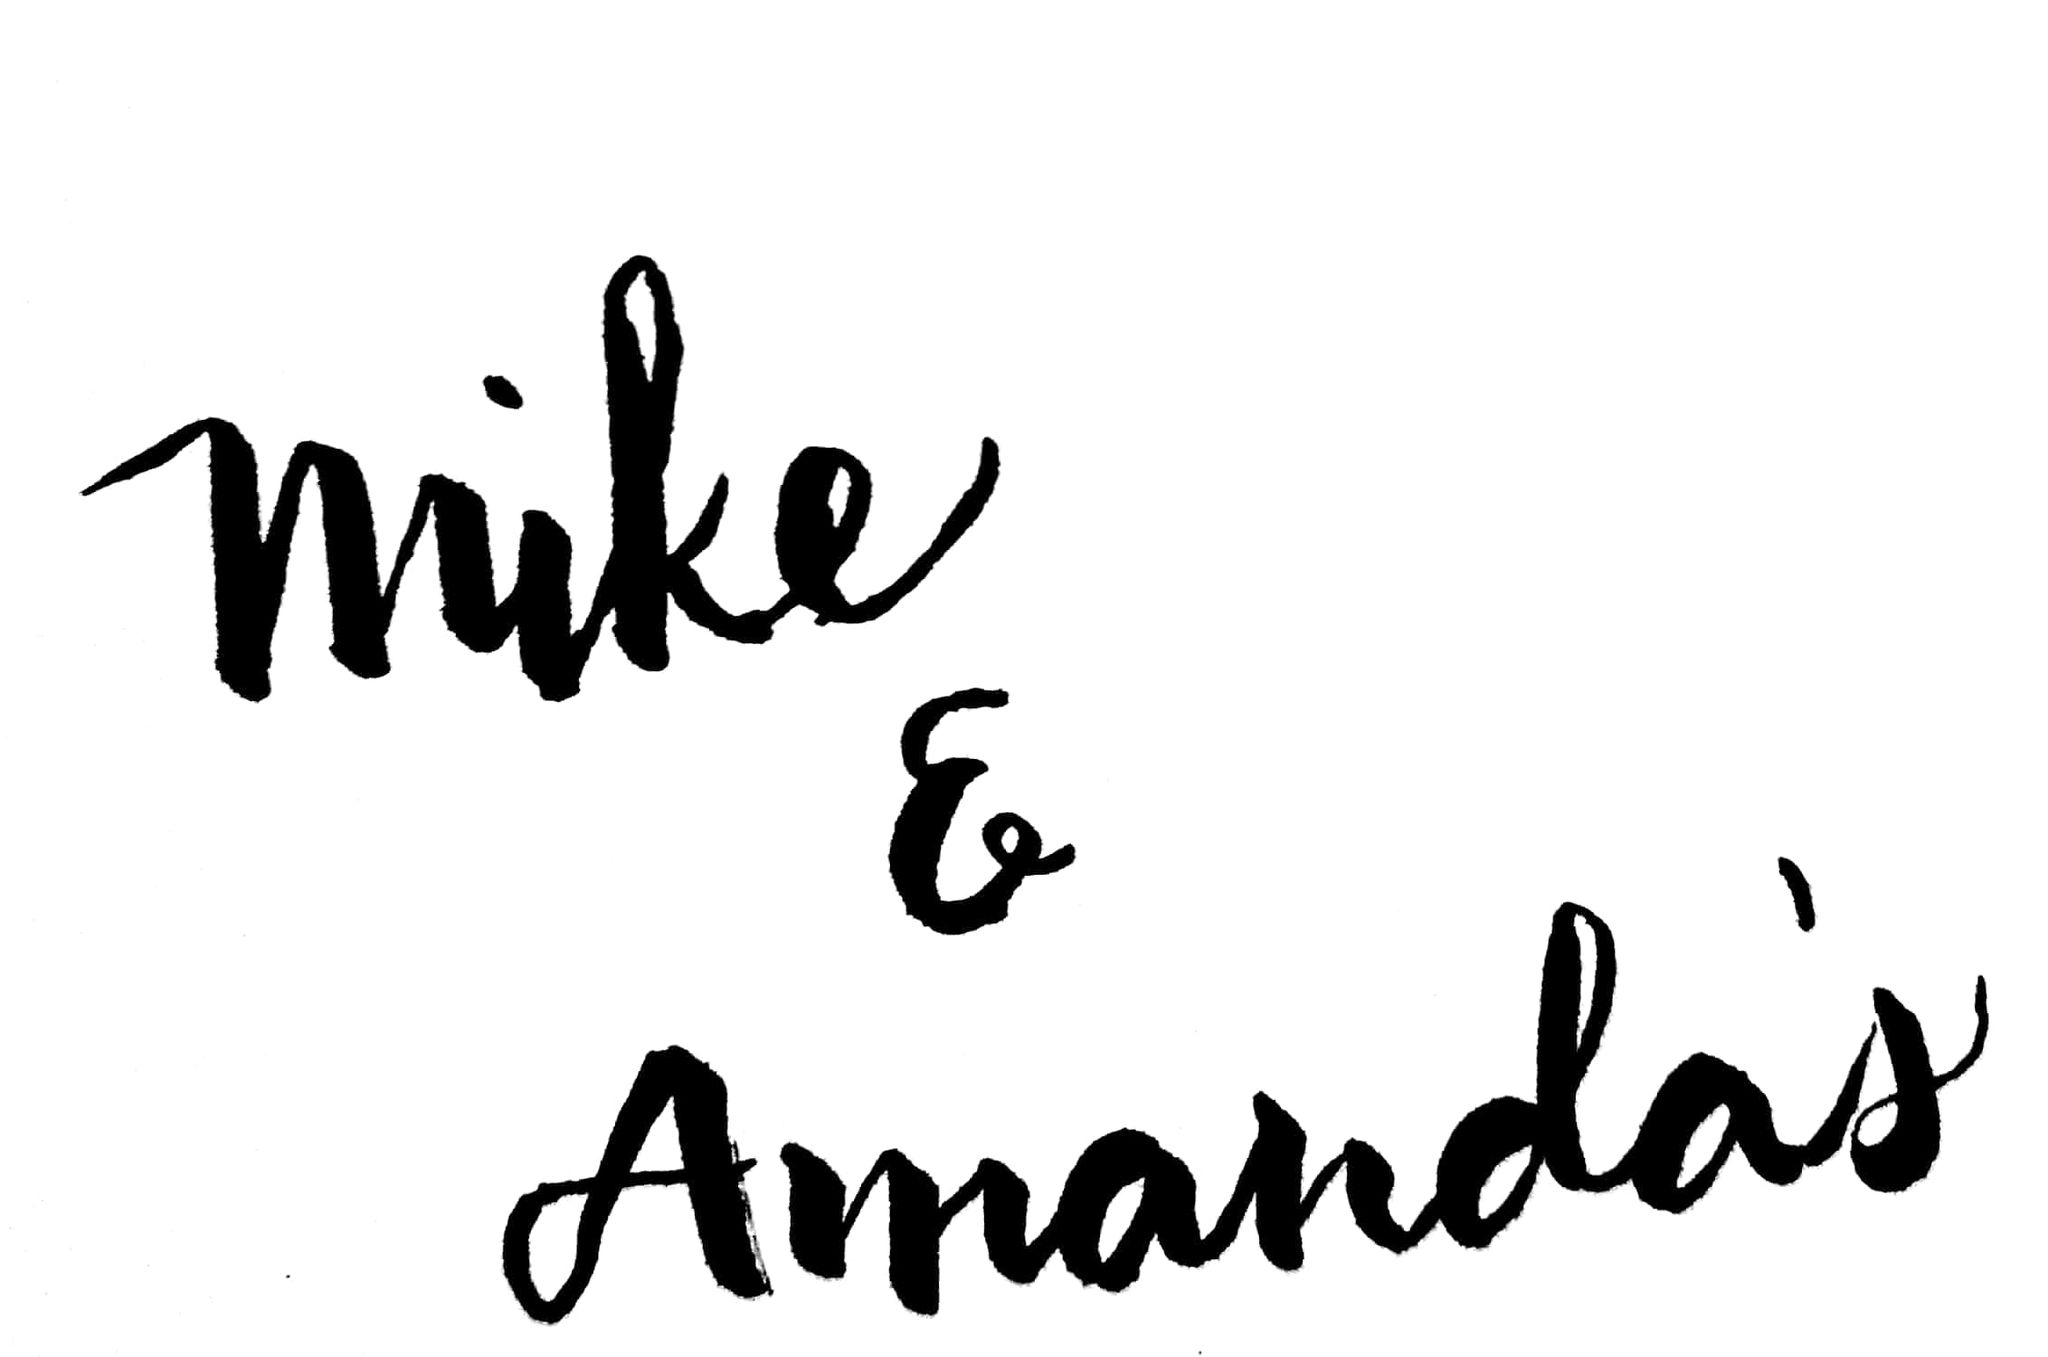 Mike
&
Amanda's